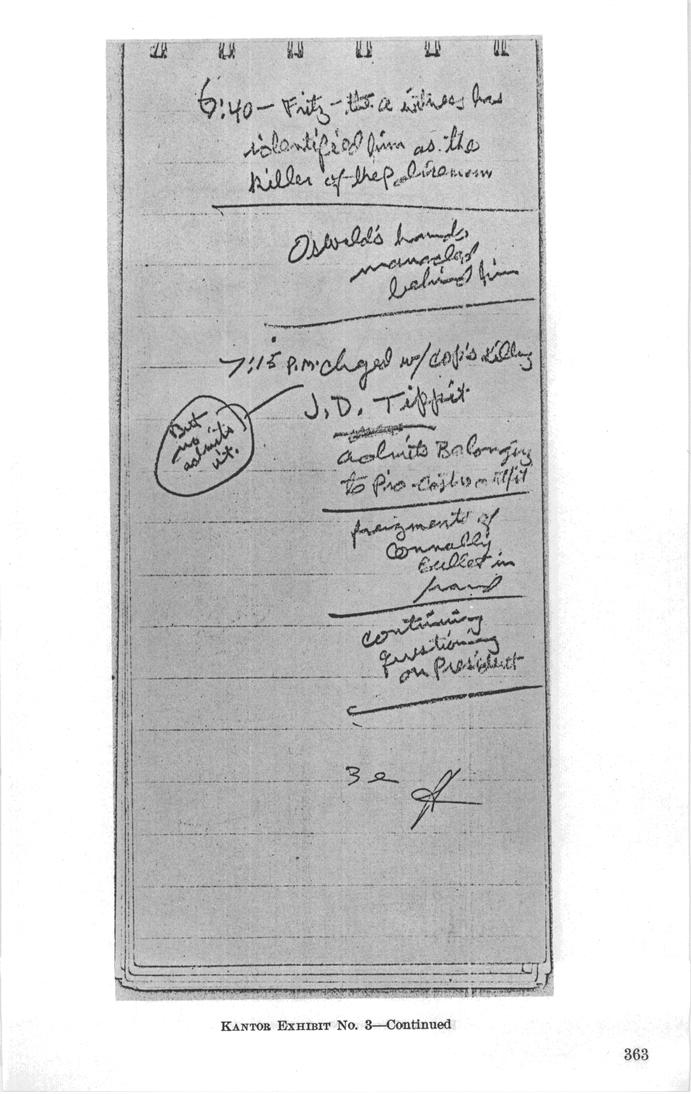 6:40 — Fritz — that a witness has
identified him as the
killer of the policeman
Oswald's hands
manacled
behind him
7:15 P.M. chged w/ cop's killing
J.D. Tippit
But
no
admits
it.
admits Belonging
to Pro-Castro outfit
fragments of
Connally
bullet in
hand
continuing
questioning
on President
3 e
KANTOR EXHIBIT No. 3—Continued
363